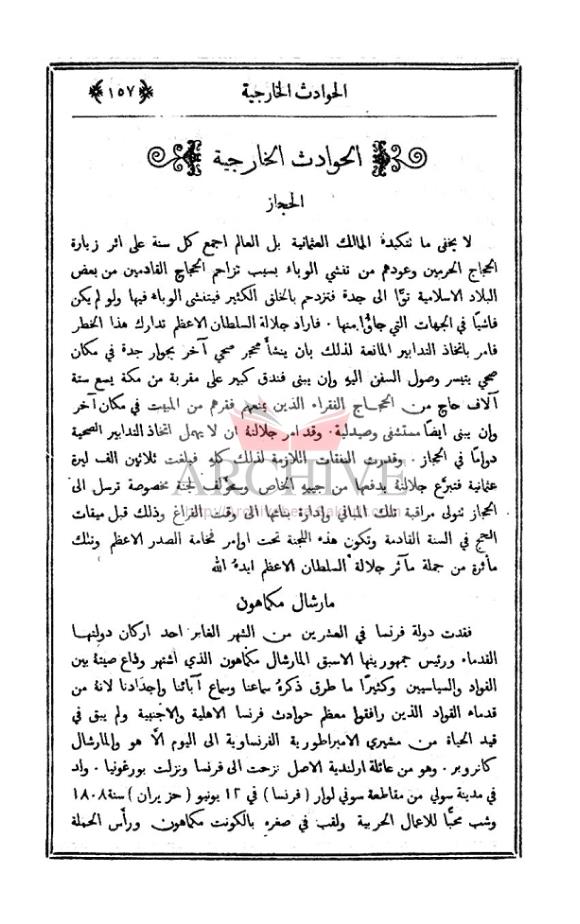 الحوادث الخارجية
﴿١٥٧﴾
الحوادث الخارجية
الحجاز
لا يخفى ما تتكبده الممالك العثمانية بل العالم اجمع كل سنة على اثر زيارة
الحجاج الحرمين وعودهم من تفشي الوباء بسبب تزاحم الحجاج القادمين من بعض
البلاد الاسلامية توًّا الى جدة فتزدحم بالخلق الكثير فيتفشى الوباء فيها ولو لم يكن
فاشيًا في الجهات التي جاؤا منها . فاراد جلالة السلطان الاعظم تدارك هذا الخطر
فامر باتخاذ التدابير المانعة لذلك بان ينشأ محجر صحي آخر بجوار جدة في مكان
صحي يتيسر وصول السفن اليهِ وان يبنى فندق كبير على مقربة من مكة يسع ستة
آلاف حاج من الحجـاج الفقراء الذين يمنعهم فقرهم من المبيت في مكان آخر
وان يبنى ايضًا مستشفى وصيدلية . وقد امر جلالتهُ ان لا يهمل اتخاذ التدابير الصحية
دوامًا في الحجاز . وقدرت النفقات اللازمة لذلك كلهِ فبلغت ثلاثين الف ليرة
ARCHIVE
عثمانية فتبرَّع جلالتهُ بدفعها من جيبهِ الخاص وسيؤلف لجنة مخصوصة ترسل الى
الحجاز تتولى مراقبة تلك المباني وادارة بنائها الى وقت الفراغ وذلك قبل ميقات
الحج في السنة القادمة وتكون هذه اللجنة تحت اوامر فخامة الصدر الاعظم وتلك
مأثرة من جملة مآثر جلالة السلطان الاعظم ايدهُ الله
مارشال مكماهون
فقدت دولة فرنسا في العشرين من الشهر الغابر احد اركان دولتهـا
القدماء ورئيس جمهوريتها الاسبق المارشال مكماهون الذي اشتهر وذاع صيتهُ بين
القواد والسياسيين وكثيرًا ما طرق ذكرهُ سماعنا وسماع آبائنا واجدادنا لانهُ من
قدماء القواد الذين رافقوا معظم حوادث فرنسا الاهلية والاجنبية ولم يبق في
قيد الحياة من مشيري الامبراطورية الفرنساوية الى اليوم الَّا هو والمارشال
كانروبر . وهو من عائلة ارلندية الاصل نزحت الى فرنسا ونزلت بورغونيا . ولد
في مدينة سولي من مقاطعة سوني لوار ( فرنسا ) في ١٢ يونيو ( حزيران ) سنة ١٨٠٨
وشب محبًّا للاعمال الحربية ولقب في صغرهِ بالكونت مكماهون ورأس الحملة